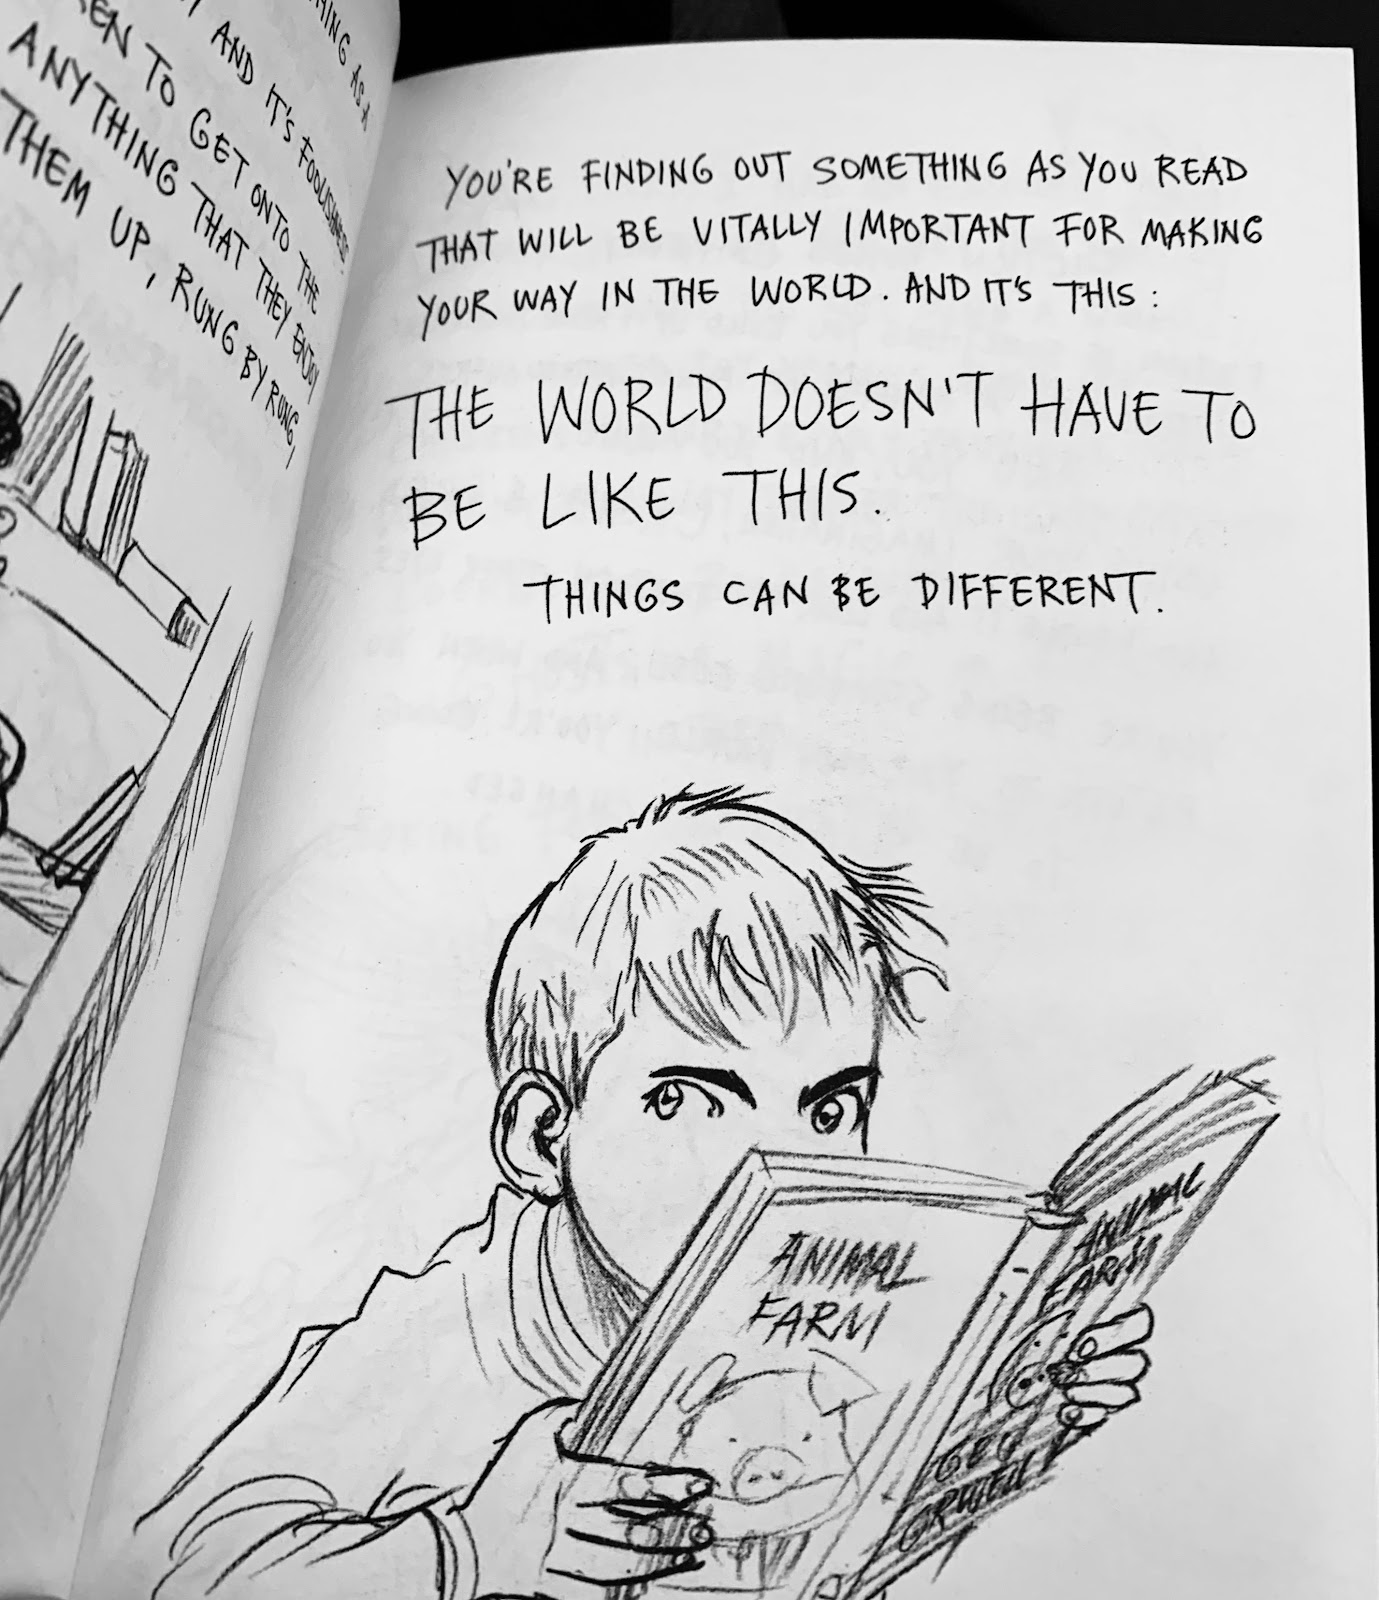 HING AS A
AND IT'S FOOLISHNESS
EN TO GET ONTO THE
ANYTHING THAT THEY ENJOY
THEM UP, RUNG BY RUNG,
YOU'RE FINDING OUT SOMETHING AS YOU READ
THAT WILL BE VITALLY IMPORTANT FOR MAKING
YOUR WAY IN THE WORLD. AND IT'S THIS:
THE WORLD DOESN'T HAVE TO
BE LIKE THIS.
THINGS CAN BE DIFFERENT.
ANIMAL
FARM
ANIMAL
FARM
GEO
ORWELL